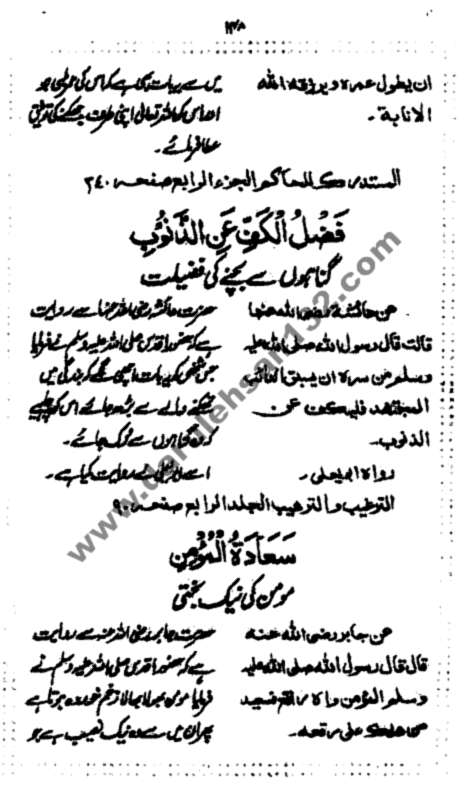 ۱۴۸
ان يطول عمره ويرزقه الله
الانابة۔
میں سے یہ بات بھی ہے کہ اس کی عمر لمبی ہو
اور اس کو اللہ تعالیٰ اپنی طرف جھکنے کی توفیق
عطا فرمائے۔
المستدرك للحاكم الجزء الرابع صفحہ ۲۴۰
فَضْلُ الْكَفِّ عَنِ الذُّنُوْبِ
گناہوں سے بچنے کی فضیلت
عن عائشة رضی الله عنها
قالت قال رسول الله صلی الله علیه
وسلم من سره ان يسبق الدائب
المجتهد فليكف عن
الذنوب۔
رواه ابو يعلى۔
حضرت عائشہ رضی اللہ عنہا سے روایت
ہے کہ حضور اقدس صلی اللہ علیہ وسلم نے فرمایا
جس شخص کو یہ بات اچھی لگے کہ بندگی میں
تھکنے والے سے بڑھ جائے اس کو چاہیے
کہ وہ گناہوں سے رک جائے۔
اسے ابو یعلیٰ نے روایت کیا ہے۔
الترغيب والترهيب الجلد الرابع صفحہ ۹۰
سَعَادَةُ الْمُؤْمِنِ
مومن کی نیک بختی
عن جابر رضی الله عنه
قال قال رسول الله صلی الله علیه
وسلم المؤمن واه راقع فسعيد
من هلك على رقعه۔
حضرت جابر رضی اللہ عنہ سے روایت
ہے کہ حضور اقدس صلی اللہ علیہ وسلم نے
فرمایا مومن بھولا بھالا زخم خوردہ ہوتا ہے
پس ان میں سے وہ نیک نصیب ہے جو
www.darulehsan132.com